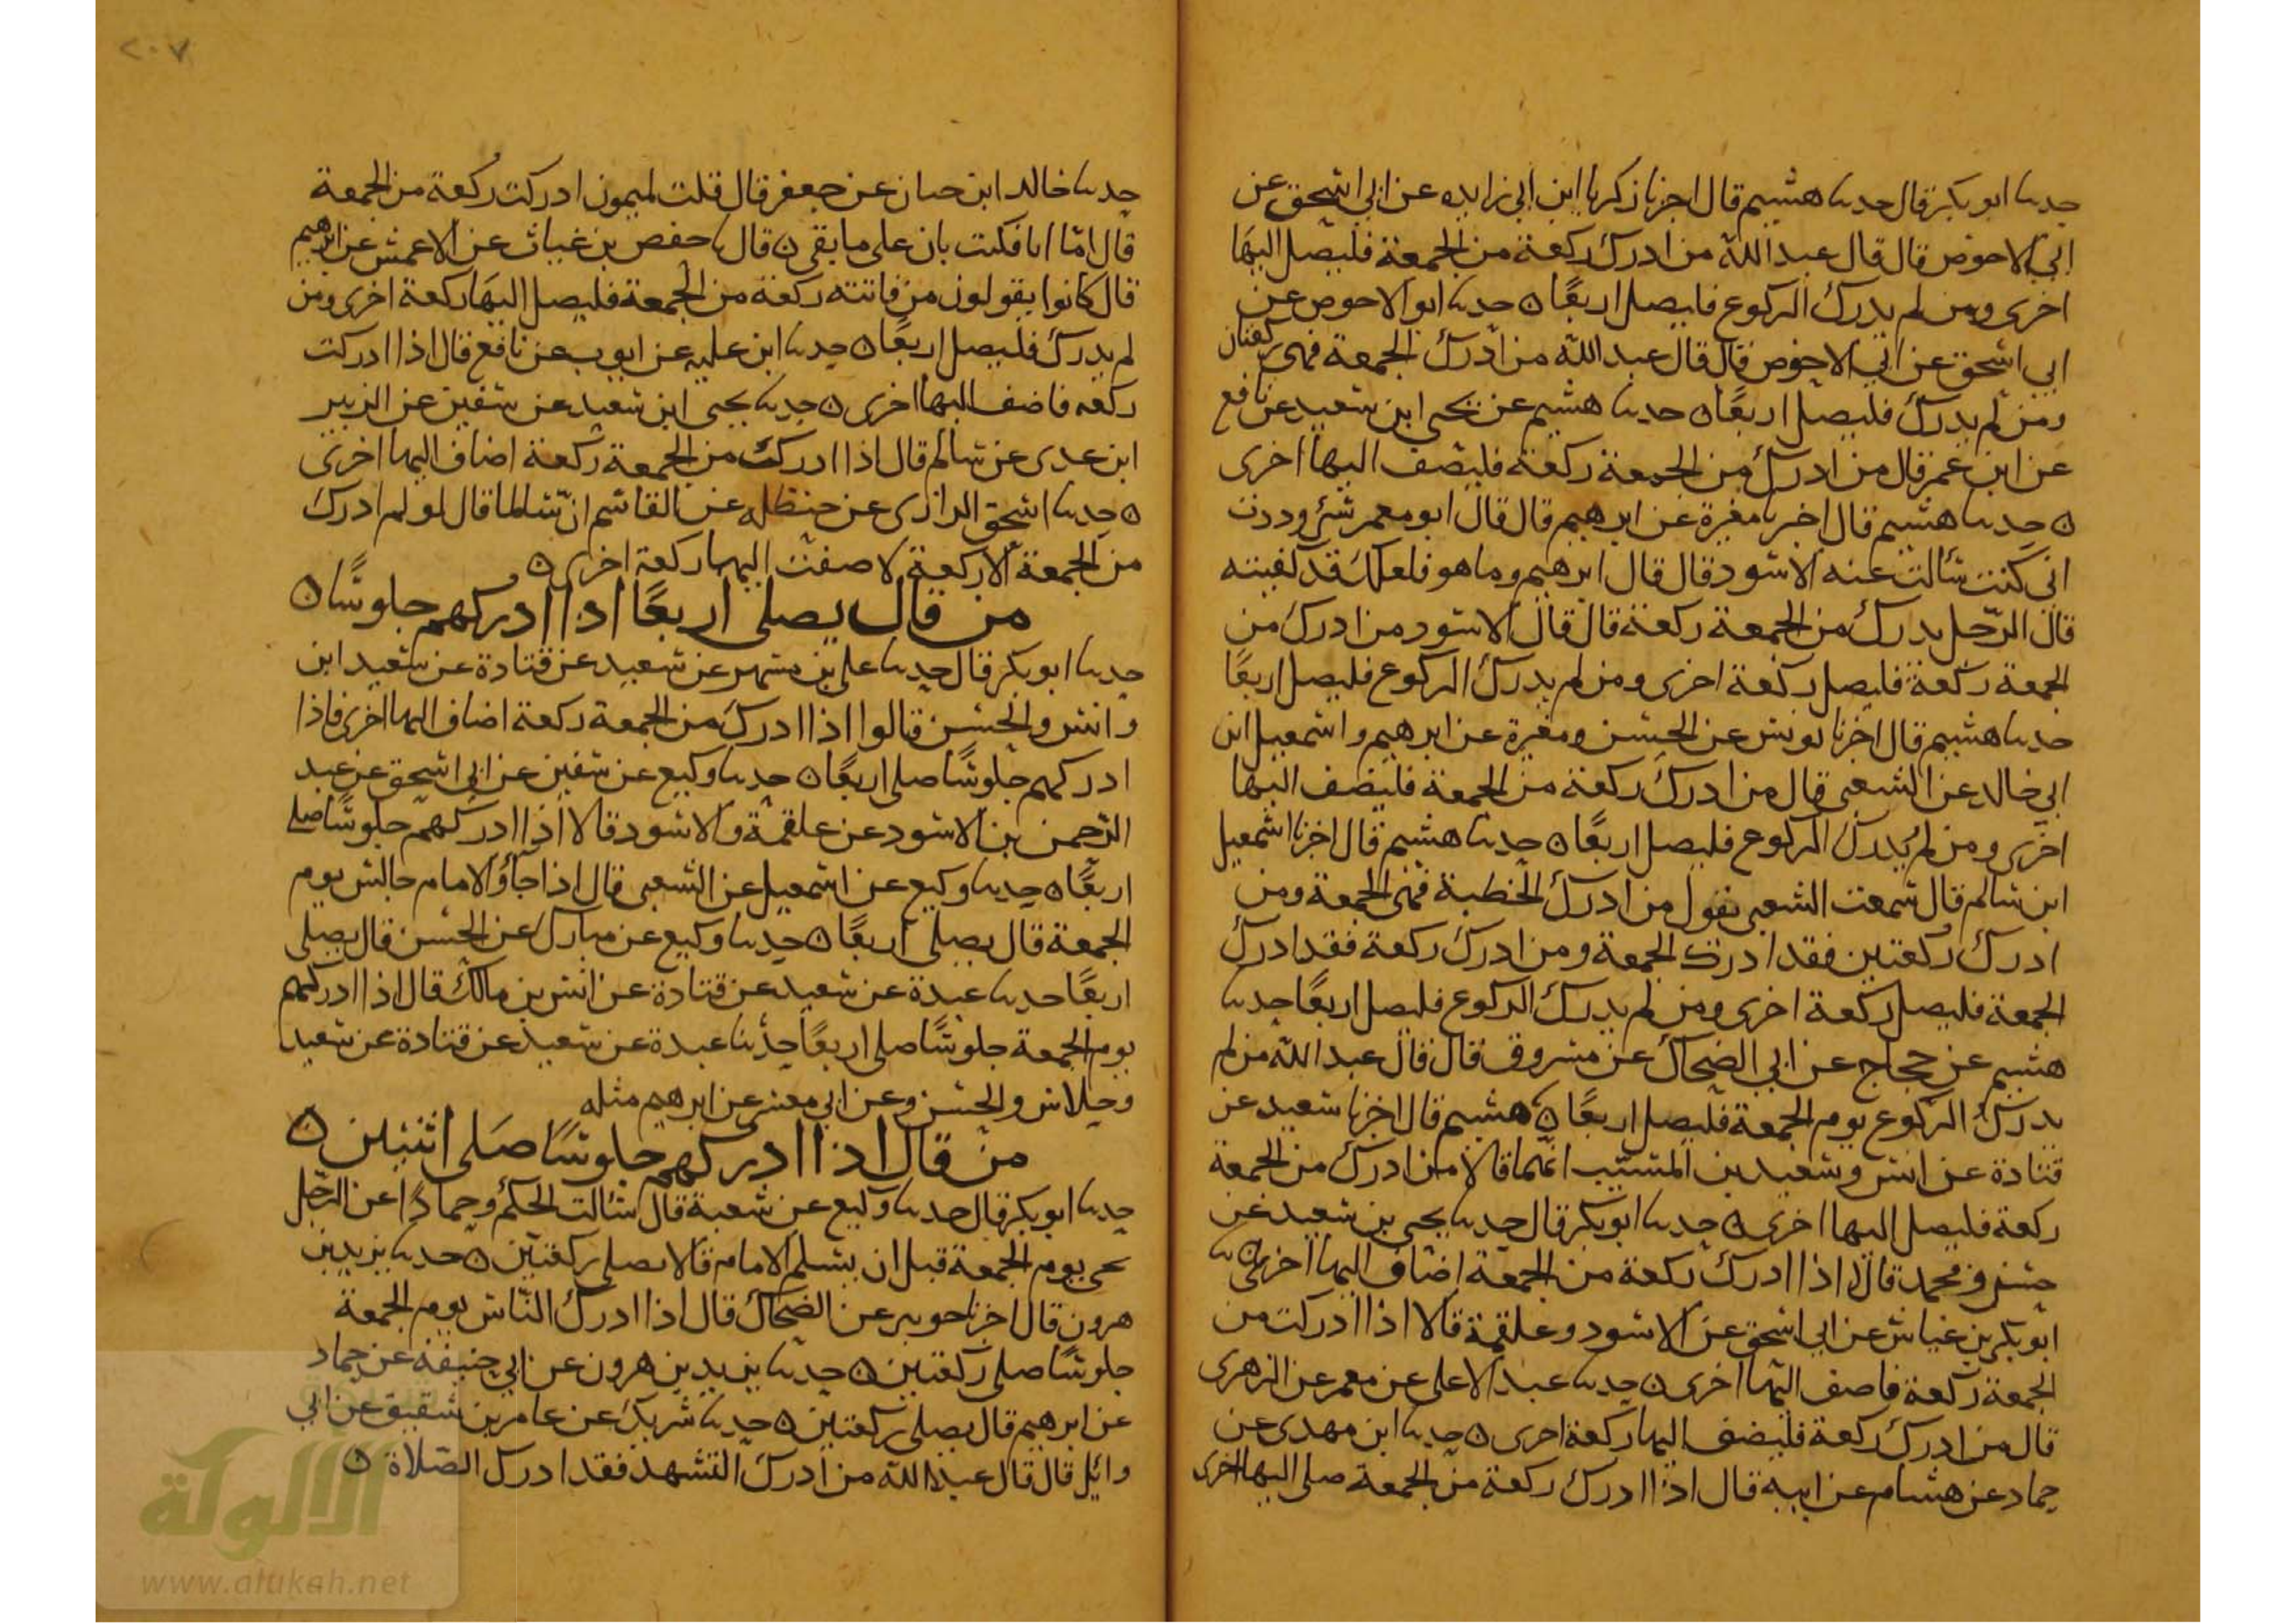 حدثنا ابو بكر قال حدثنا هشيم قال اخبرنا زكريا ابن ابي زايده عن ابي اسحق عن
ابي الاحوص قال قال عبد الله من ادرك ركعة من الجمعة فليصل اليها
اخرى ومن لم يدرك الركوع فليصل اربعًا ه حدثنا ابو الاحوص عن
ابي اسحق عن ابي الاحوص قال قال عبد الله من ادرك الجمعة فهى ركعتان
ومن لم يدرك فليصل اربعًا ه حدثنا هشيم عن يحيى ابن سعيد عن نافع
عن ابن عمر قال من ادرك من الجمعة ركعة فليضف اليها اخرى
ه حدثنا هشيم قال اخبرنا مغيرة عن ابرهيم قال قال ابو معمر شئ وددت
انى كنت سألت عنه الاسود قال قال ابرهيم وما هو فلعلك قد كفيته
قال الرّجل يدرك من الجمعة ركعة قال قال الاسود من ادرك من
الجمعة ركعة فليصل ركعة اخرى ومن لم يدرك الركوع فليصل اربعًا
حدثنا هشيم قال اخبرنا يونس عن الحسن ومغيرة عن ابرهيم واسمعيل ابن
ابي خالد عن الشعبى قال من ادرك ركعة من الجمعة فليضف اليها
اخرى ومن لم يدرك الركوع فليصل اربعًا ه حدثنا هشيم قال اخبرنا اسمعيل
ابن سالم قال سمعت الشعبى يقول من ادرك الخطبة فهى الجمعة ومن
ادرك ركعتين فقد ادرك الجمعة ومن ادرك ركعة فقد ادرك
الجمعة فليصل ركعة اخرى ومن لم يدرك الركوع فليصل اربعًا حدثنا
هشيم عن حجاج عن ابي الضحاك عن مسروق قال قال عبد الله من لم
يدرك الركوع يوم الجمعة فليصل اربعًا ه هشيم قال اخبرنا سعيد عن
قتادة عن انس وسعيد بن المسيّب انهما قالا من ادرك من الجمعة
ركعة فليصل اليها اخرى ه حدثنا ابو بكر قال حدثنا يحيى بن سعيد عن
حسن ومحمد قالا اذا ادرك ركعة من الجمعة اضاف اليها اخرى ه ثنا
ابو بكر بن عياش عن ابي اسحق عن الاسود وعلقمة قالا اذا ادركت من
الجمعة ركعة فاضف اليها اخرى ه حدثنا عبد الاعلى عن معمر عن الزهرى
قال من ادرك ركعة فليضف اليها ركعة اخرى ه حدثنا ابن مهدى عن
حماد عن هشام عن ابيه قال اذا ادرك ركعة من الجمعة صلى اليها اخرى
٢٠٧
حدثنا خالد ابن حبان عن جعفر قال قلت لميمون ادركت ركعة من الجمعة
قال امّا انا فكنت بان على ما بقى ه قال ثنا حفص بن غياث عن الاعمش عن ابرهيم
قال كانوا يقولون من فاتته ركعة من الجمعة فليصل اليها ركعة اخرى ومن
لم يدرك فليصل اربعًا ه حدثنا ابن عليه عن ايوب عن نافع قال اذا ادركت
ركعه فاضف اليها اخرى ه حدثنا يحيى ابن سعيد عن سفين عن الزبير
ابن عدى عن سالم قال اذا ادركت من الجمعة ركعة اضاف اليها اخرى
ه حدثنا اسحق الرازى عن حنظله عن القاسم انّ سالما قال لو لم ادرك
من الجمعة الا ركعة لاضفت اليها ركعة اخرى ه
من قال يصلى اربعًا اذا ادركهم جلوسًا ه
حدثنا ابو بكر قال حدثنا على بن مسهر عن سعيد عن قتادة عن سعيد ابن
وانس والحسن قالوا اذا ادرك من الجمعة ركعة اضاف اليها اخرى فاذا
ادركهم جلوسًا صلى اربعًا ه حدثنا وكيع عن سفين عن ابي اسحق عن عبد
الرّحمن بن الاسود عن علقمة والاسود قالا اذا ادركهم جلوسًا صلى
اربعًا ه حدثنا وكيع عن اسمعيل عن الشعبى قال اذا جاؤ الامام جالس يوم
الجمعة قال يصلى اربعًا ه حدثنا وكيع عن مبارك عن الحسن قال يصلى
اربعًا حدثنا عبدة عن سعيد عن قتادة عن انس بن مالك قال اذا ادركهم
يوم الجمعة جلوسًا صلى اربعًا حدّثنا عبدة عن سعيد عن قتادة عن سعيد
وخلاس والحسن وعن ابي معشر عن ابرهيم مثله
من قال اذا ادركهم جلوسًا صلى اثنتين ه
حدثنا ابو بكر قال حدثنا وكيع عن شعبة قال سألت الحكم وحمادًا عن الرّجل
يجى يوم الجمعة قبل ان يسلم الامام قالا يصلى ركعتين ه حدثنا يزيد بن
هرون قال اخبرنا جويبر عن الضحاك قال اذا ادرك النّاس يوم الجمعة
جلوسًا صلى ركعتين ه حدثنا يزيد بن هرون عن ابي حنيفة عن حماد
عن ابرهيم قال يصلى ركعتين ه حدثنا شريك عن عامر بن شقيق عن ابي
وائل قال قال عبد الله من ادرك التشهد فقد ادرك الصّلاة ه
الألوكة
www.alukah.net